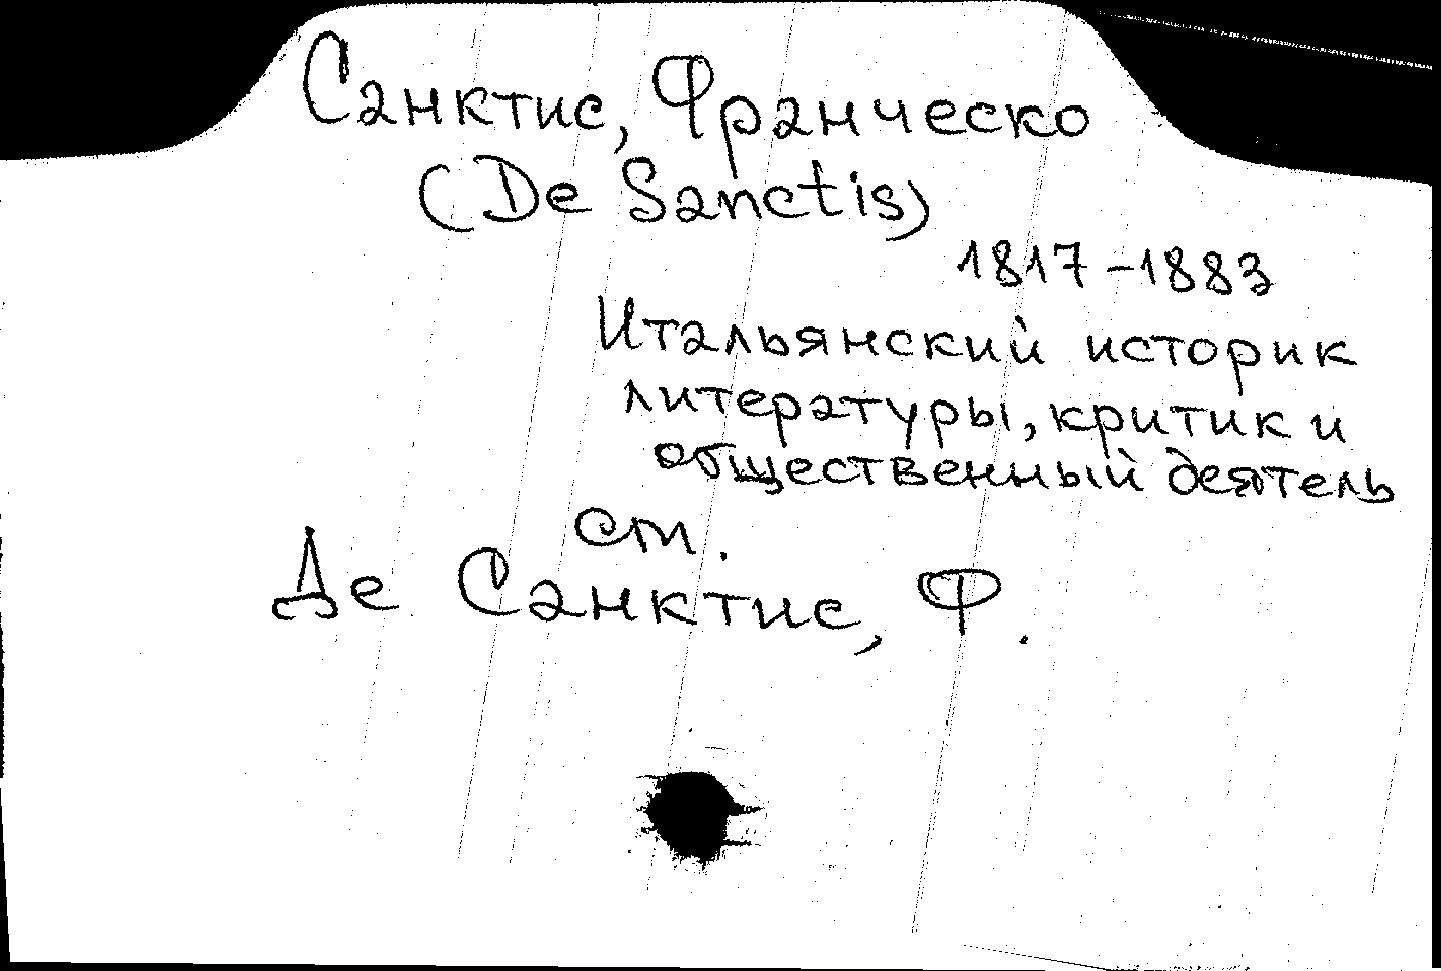 Санктис, Франческо
(De Sanctis)
1817-1883
Итальянский историк
литературы, критик и
общественный деятель
см.
Де Санктис, Ф.